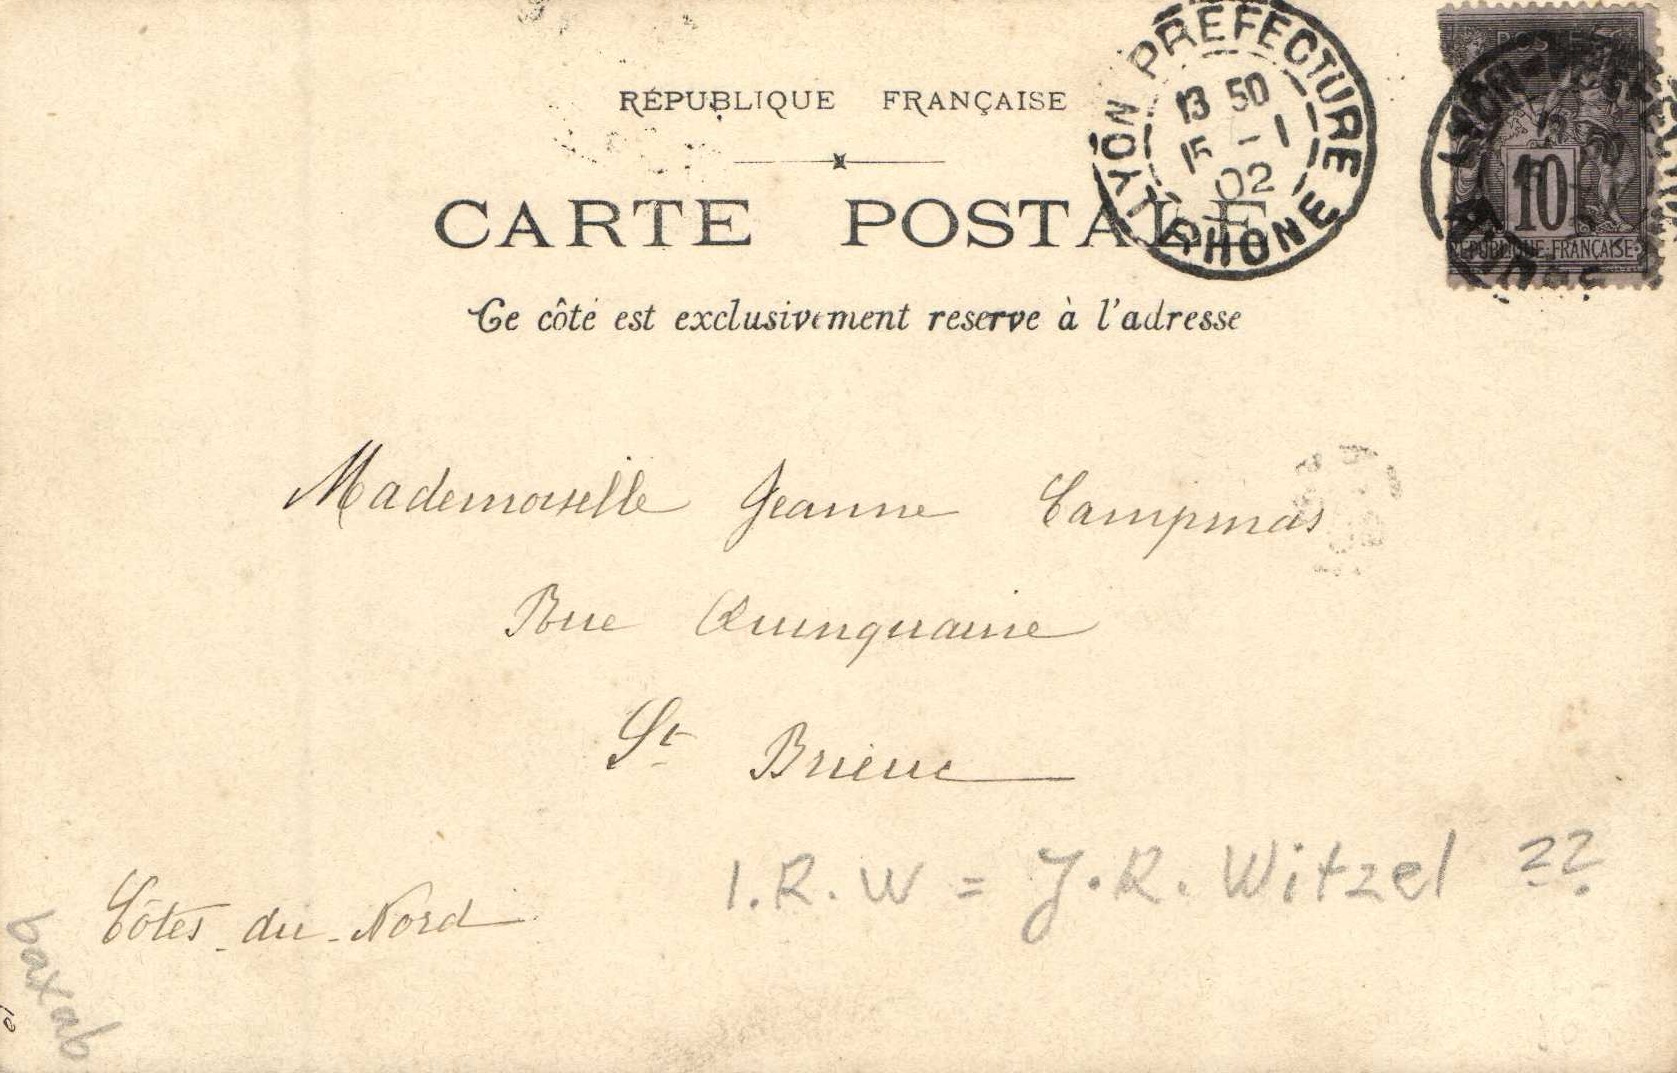 RÉPUBLIQUE FRANÇAISE
CARTE POSTALE
Ce côté est exclusivement reserve à l'adresse
LYON PREFECTURE
13 50
15 -1
02
RHONE
POSTES
10
REPUBLIQUE FRANÇAISE
LYON
Mademoiselle Jeanne Campmas
Rue Quinquaine
St Brieuc
Côtes-du-Nord
I.R.W = J.R. Witzel ??
baxab